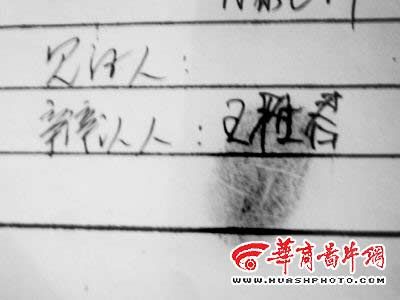 见证人：
辨认人：王
華商圖片網
WWW.HUASHPHOTO.COM